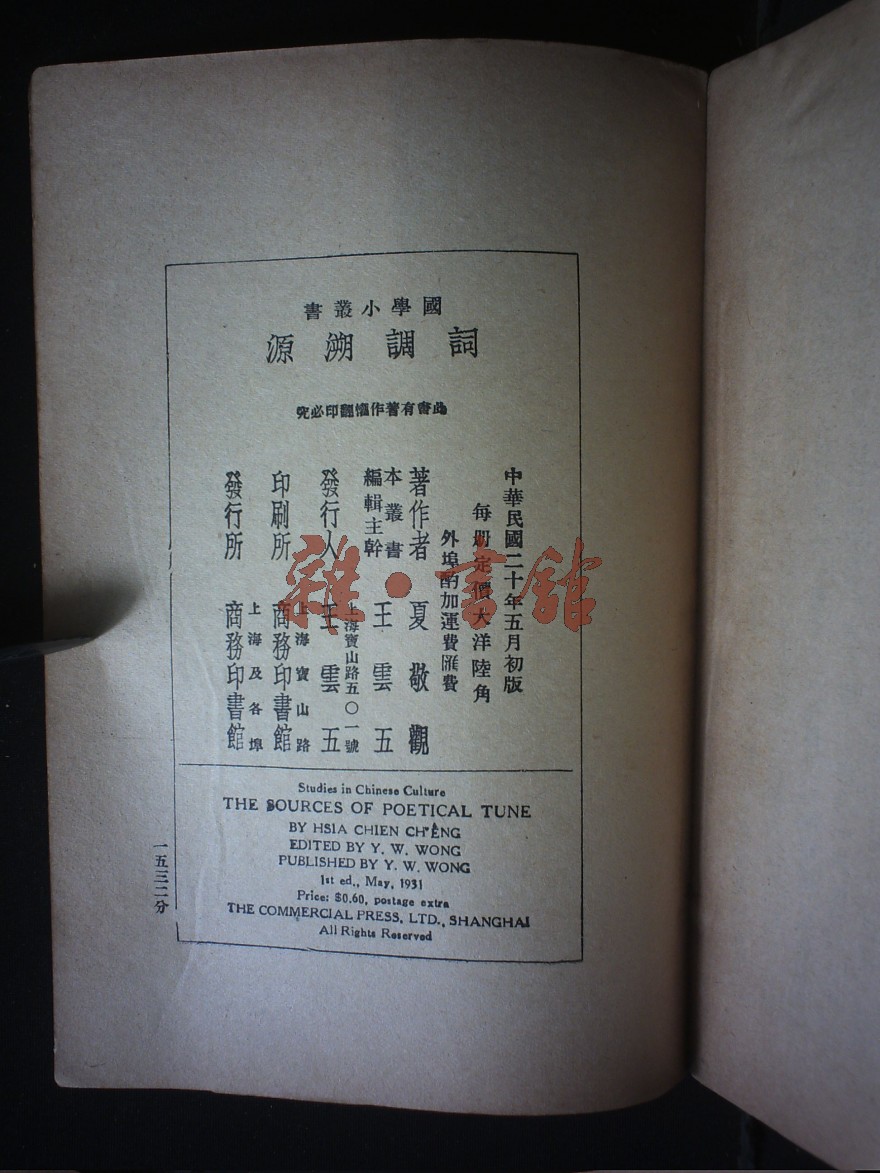 國學小叢書
詞調溯源
此書有著作權翻印必究
中華民國二十年五月初版
每册定價大洋陸角
外埠酌加運費匯費
著作者 夏敬觀
本叢書
編輯主幹 王雲五
發行人 王雲五
上海寶山路五〇一號
印刷所 商務印書館
上海寶山路
發行所 商務印書館
上海及各埠
雜·書館
Studies in Chinese Culture
THE SOURCES OF POETICAL TUNE
BY HSIA CHIEN CH'ÊNG
EDITED BY Y. W. WONG
PUBLISHED BY Y. W. WONG
1st ed., May, 1931
Price: $0.60, postage extra
THE COMMERCIAL PRESS, LTD., SHANGHAI
All Rights Reserved
一五三二分